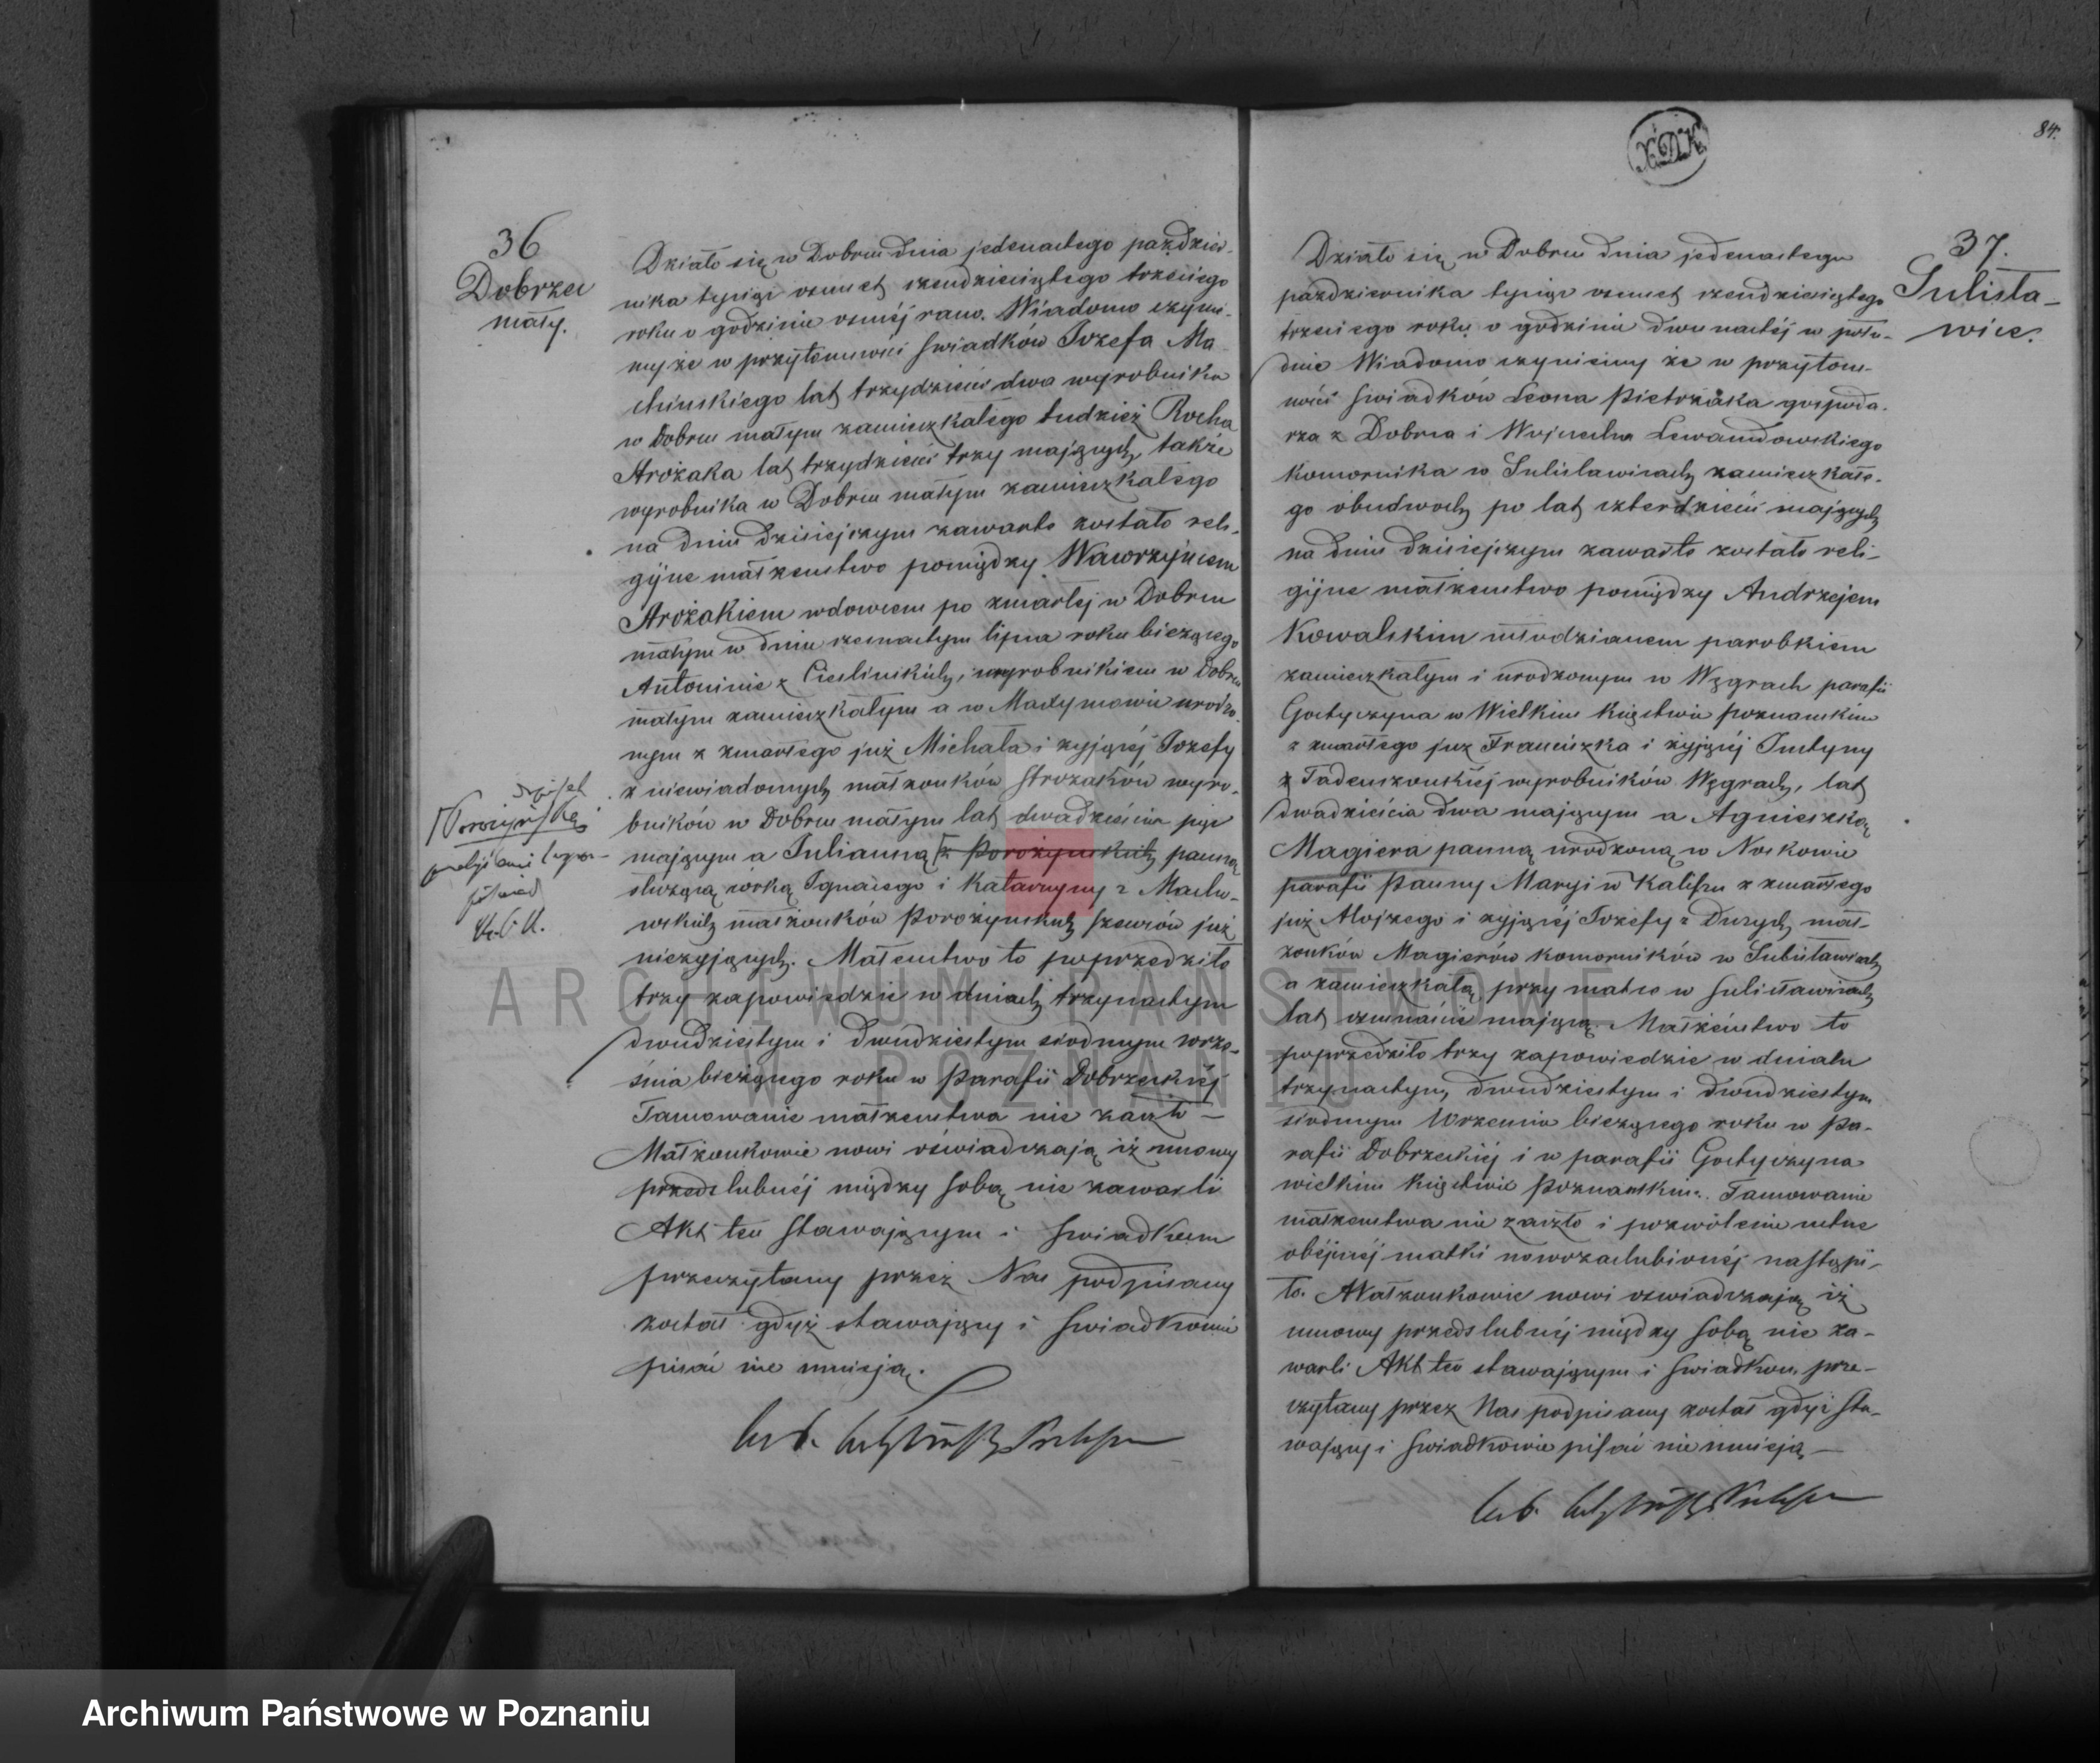 36
Dobrzec
mały.
Działo się w Dobrcu dnia jedenastego paździer-
nika tysiąc osmset szendziesiątego trzeciego
roku o godzinie osméj rano. Wiadomo czyni-
my że w przytomności swiadków Jozefa Ma
chińskiego lat trzydzieści dwa wyrobnika
w Dobrcu małym zamieszkałego tudzież Rocha
Strożaka lat trzydzieści trzy mających także
wyrobnika w Dobrcu małym zamieszkałego
na dniu dzisiejszym zawarte zostało reli-
gijne małżenstwo pomiędzy Wawrzyńcem
Strożakiem wdowcem po zmarłej w Dobrcu
małym w dniu szesnastym lipca roku bieżącego
Antoninie z Cieslinskich, wyrobnikiem w Dobrcu
małym zamieszkałym a w urodzo-
nym z zmarłego już Michała i zyjącéj Jozefy
z niewiadomych małżonków Strozaków wyro-
bników w Dobrcu małym lat dwadzieścia pięc
mającym a Julianną z Porożynskich panną
służącą córką Ignacego i Katarzyny z
małżonków Porożynskich szewców już
nieżyjących. Małenstwo to poprzedziło
trzy zapowiedzie w dniach trzynastym
dwudziestym i dwudziestym siodmym wrze-
śnia bieżącego roku w Parafii Dobrzeckiéj
Tamowanie małżenstwa nie zaszło –
Małżonkowie nowi oświadczają iż umowy
przedslubnéj między sobą nie zawarli
Akt ten stawającym i swiadkom
przeczytany przez Nas podpisany
został gdyż stawający i swiadkowie
pisać nie umieją.
XDK
84.
37.
Sulisła-
wice.
Działo się w Dobrcu dnia jedenastego
pazdziernika tysiąc osmset szendziesiątego
trzeciego roku o godzinie dwunastéj w połu-
dnie Wiadomo czyniemy że w przytom-
ności swiadków Leona Pietrzaka gospoda-
rza z Dobrca i Wojciecha Lewandowskiego
komornika w Sulisławicach zamieszkałe-
go obudwóch po lat czterdzieści mających
na dniu dzisiejszym zawarte zostało reli-
gijne małżenstwo pomiędzy Andrzejem
Kowalskim młodzianem parobkiem
zamieszkałym i urodzonym w Węgrach parafii
Gostyczyna w Wielkim księstwie poznanskim
z zmarłego juz Franciszka i żyjącéj Justyny
z Tadeuszonkiéj wyrobników Węgrach, lat
dwadzieścia dwa mającym a Agnieszką
Magiera panną urodzoną w Noskowie
parafii Panny Maryi w Kaliszu z zmarłego
już Alojzego i zyjącéj Jozefy z Duzych mał-
zonków Magierów komorników w Sulisławicach
a zamieszkałą przy matce w Sulisławicach
lat osmnaście mającą. Małżeństwo to
poprzedziło trzy zapowiedzie w dniach
trzynastym, dwudziestym i dwudziestym
siodmym Wrzesnia bieżącego roku w Pa-
rafii Dobrzeckiéj i w parafii Gostyczyna
wielkim księstwie Poznanskim. Tamowanie
małżenstwa nie zaszło i pozwolenie ustne
obéjnéj matki nowozaslubionéj nastąpi-
ło. Małżonkowie nowi oswiadczają iż
umowy przedslubnéj między sobą nie za-
warli Akt ten stawającym i swiadkom prze-
czytany przez Nas podpisany został gdyż sta-
wający i swiadkowie pisać nie umieją –
ARCHIWUM PAŃSTWOWE
W POZNANIU
Archiwum Państwowe w Poznaniu